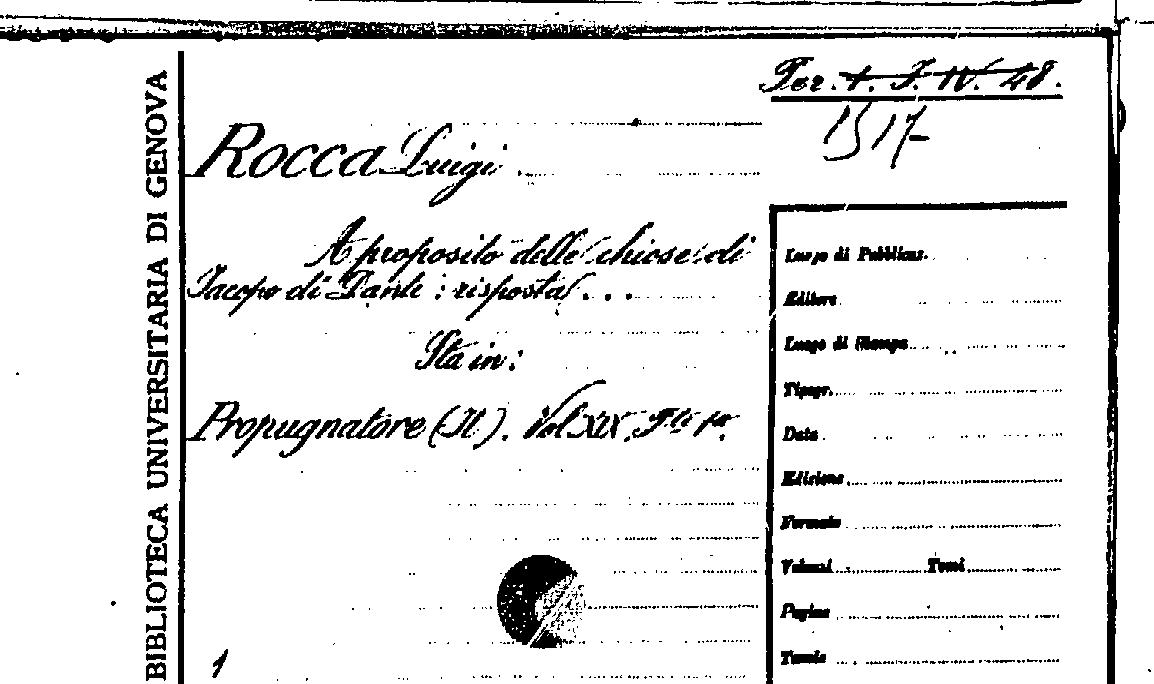 BIBLIOTECA UNIVERSITARIA DI GENOVA
Per. 1. J. IV. 48.
1517
Rocca Luigi
A proposito delle chiose di
Jacopo di Dante : risposta . . .
Sta in :
Propugnatore (Il). Vol XIX. Pte 1ª.
1
Luogo di Pubblicaz.
Editore
Luogo di Stampa
Tipogr.
Data
Edizione
Formato
Volumi Tomi
Pagine
Tavole